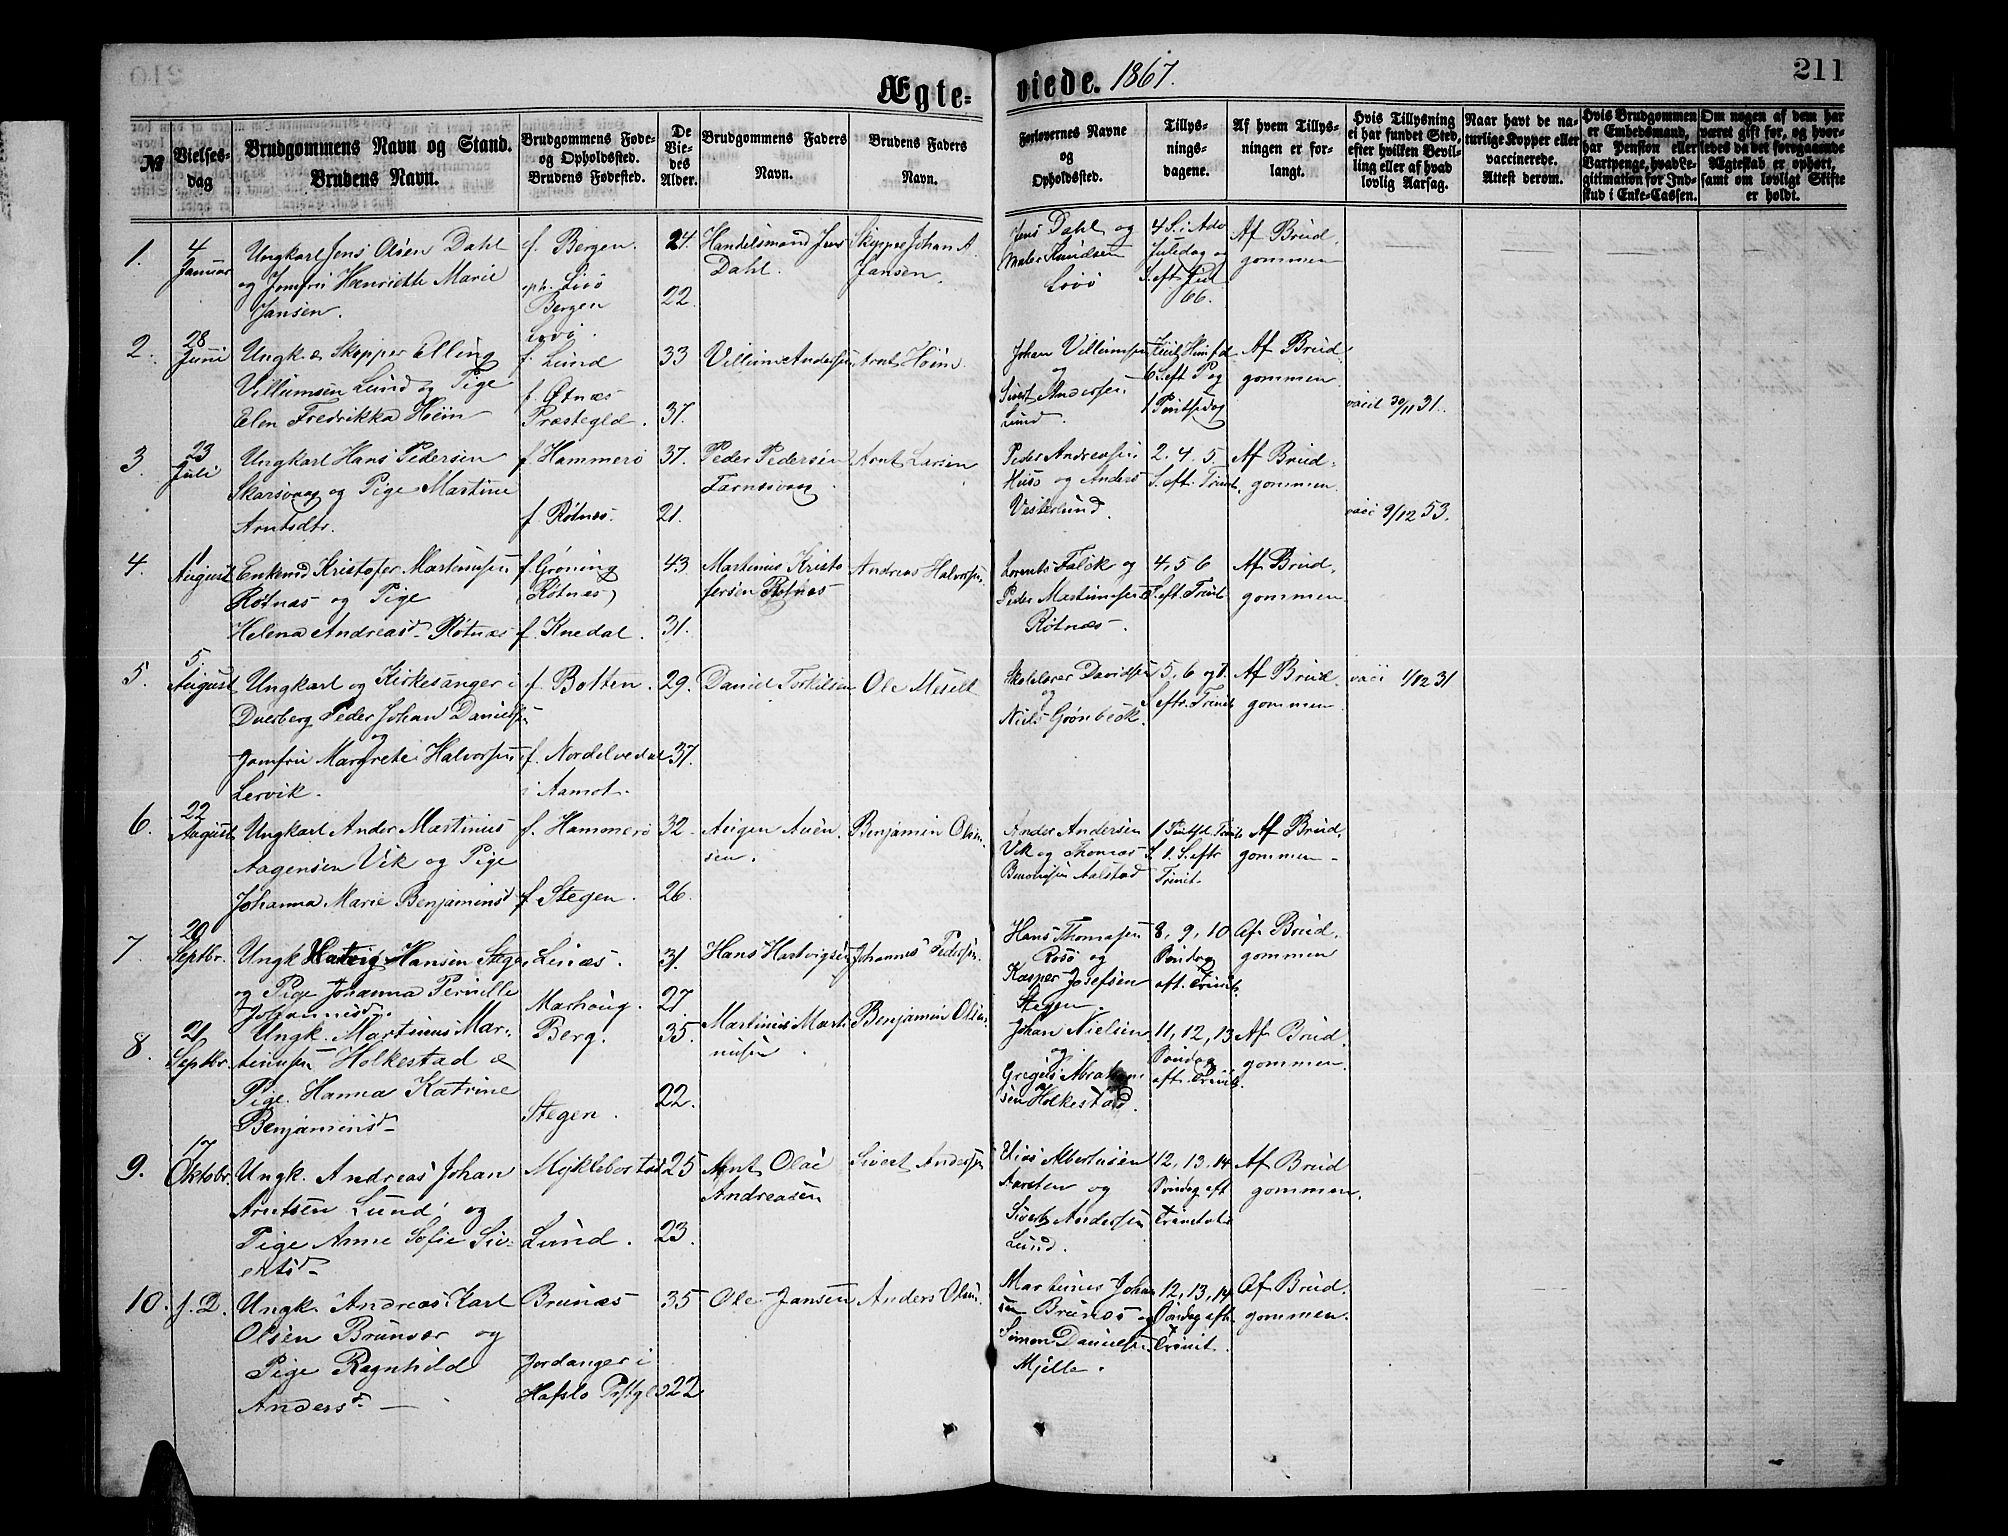 211
Ægte-viede. 1867.
№
Vielses-dag
Brudgommens Navn og Stand.
Brudens Navn.
Brudgommens Føde- og Opholdssted.
Brudens Fødested.
De Viedes Alder.
Brudgommens Faders Navn.
Brudens Faders og Navn.
Forlovernes Navne og Opholdssted.
Tillysningsdagene.
Af hvem Tillysningen er forlangt.
Hvis Tillysning ei har fundet Sted, efter hvilken Bevilling eller af hvad lovlig Aarsag.
Naar havt de naturlige Kopper eller vaccinerede. Attest derom.
Hvis Brudgommen er Embedsmand, har Pension eller Vartpenge, hvad Legitimation for Indskud i Enke-Cassen.
Om nogen af dem har været gift før, og hvorledes da det foregaaende Ægteskab er ophørt, samt om lovligt Skifte er holdt.
1. 4 Januar
Ungkarl Jens Olsen Dahl
og Jomfru Henriette Marie
Jansen.
f. Bergen.
oph. Lovö
Bergen
Lovö.
24.
22.
Handelsmand Jens
Dahl.
Skipper Johan A.
Jansen.
Jens Dahl og
Knudsen
Lovö
4 S. i Adv
Juledag og
S. eft. Juul
66.
Af Brud-
gommen
2. 28 Juni
Ungk. & Skipper Elling
Villumsen Lund og Pige
Elen Fredrikka Hoën
f. Lund
f. Øxnæs
Præstegld.
33
37.
Villum Andersen
Arnt Hoën.
Johan Villumsen
og
Sivert Andersen
Lund.
6 S. eft P og
1 Pintsedag
Af Brud-
gommen
vacc 30/11 31.
3. 23 Juli
Ungkarl Hans Pedersen
Skarsvaag og Pige Martine
Arntsdtr.
f. Hammerö
f. Røtnæs.
37.
21.
Peder Pedersen
Arnt Larsen
Peder Andreasen
Huso og Anders
Vesterlund.
2. 4. 5.
S. eft. Trinit.
Af Brud-
gommen.
vacc 9/12 53.
4. 1 August
Enkemd Kristofer Martinusen
Røtnæs og Pige
Helena Andreasd. Røtnæs
f. Gröning
(Røtnes)
f. Knedal.
43
31.
Martinus Kristo
fersen Røtnæs
Andreas Halvorsen.
Lorents Falck og
Peder Martinusen
Røtnæs.
4, 5 6
S. eft. Trinit
Af Brud-
gommen
5. 5. August
Ungkarl og Kirkesanger i
Dverberg Peder Johan Danielsen
og
Jomfru Margrete Halvorsen
Lervik.
f. Botten.
f. Nordelvedal
i Aamot.
29.
37.
Daniel Torkilsen
Ole Meselt
Skolelærer Davidsen
og
Niels Grönbeck.
5, 6 og 7.
S. eftr. Trinit
Af Brud-
gommen
vacc 1/12 31
6. 22 August
Ungkarl Ander Martinus
Aagensen Vik og Pige
Johanna Marie Benjaminsd
f. Hammerö
f. Stegen.
32.
26.
Augen Auen
sen.
Benjamin Olsen.
Ander Andersen
Vik og Thomas
Aalstad
1 Pintsd. Trinit
& 1. S. eftr
Trinit.
Af Brud-
gommen
7. 20 Septbr.
Ungk Hartvig Hansen Stegen
og Pige Johanna Pernille
Johannisd.
Linæs.
Marhoug.
31.
27.
Hans Hartvigsen
Johannes Pedersen.
Hans Thomasen
Rosö og
Kasper Josefsen
Stegen.
8, 9, 10
Söndag
eft. Trinit.
Af Brud-
gommen
8. 21 Septbr.
Ungk. Martinus Mar-
tinusen Holkestad &
Pige Hanna Katrine
Benjaminsd
Berg.
Stegen.
35.
22.
Martinus Marti
nusen.
Benjamin Olsen.
Johan Nielsen
og
Gregers Abraham
sen Holkestad.
11, 12, 13
Söndag
eft. Trinit.
Af Brud-
gommen.
9. 17 Oktobr.
Ungk. Andreas Johan
Arntsen Lund og
Pige Anne Sofie Siv-
ertsd
Myklebostad
Lund.
25
23.
Arnt Olai
Andreasen
Sivert Andersen
Albertusen
Aarsten og
Sivert Andersen
Lund.
12, 13, 14
Söndag eft
Trinitatis
Af Brud
gommen.
10. s. D.
Ungk. Andreas Karl
Olsen Brunær og
Pige Ragnhild
Andersd.
Brunæs
Jordanger i
Hafslo Prstgld
35
22
Ole Jansen
Anders Olsen.
Martinus Johan
sen Brunæs og
Simon Danielsen
Mjelle.
12, 13, 14
Söndag eft.
Trinit.
Af Brud-
gommen.